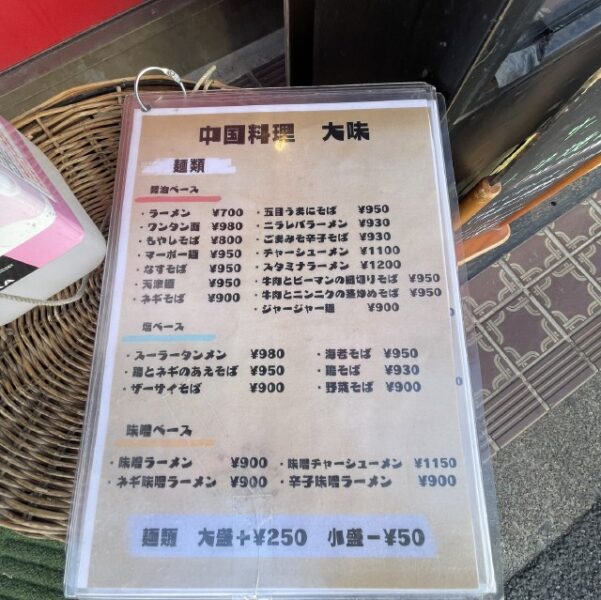 中国料理　大味
麺類
醤油ベース
・ラーメン ¥700
・ワンタン麺 ¥980
・もやしそば ¥800
・マーボー麺 ¥950
・なすそば ¥950
・天津麺 ¥950
・ネギそば ¥900
・五目うまにそば ¥950
・ニラレバラーメン ¥930
・ごまみそ辛子そば ¥930
・チャーシューメン ¥1100
・スタミナラーメン ¥1200
・牛肉とピーマンの細切りそば ¥950
・牛肉とニンニクの茎炒めそば ¥950
・ジャージャー麺 ¥900
塩ベース
・スーラータンメン ¥980
・鶏とネギのあえそば ¥950
・ザーサイそば ¥900
・海老そば ¥950
・鶏そば ¥930
・野菜そば ¥900
味噌ベース
・味噌ラーメン ¥900
・ネギ味噌ラーメン ¥900
・味噌チャーシューメン ¥1150
・辛子味噌ラーメン ¥900
麺類　大盛+¥250　小盛-¥50